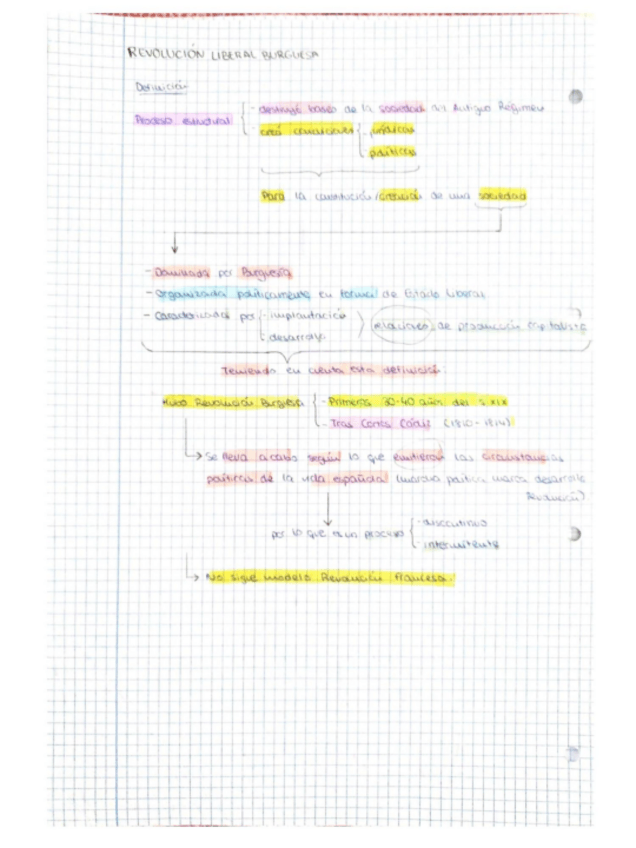 REVOLUCIÓN LIBERAL BURGUESA
Definición
Proceso estructural
- destruye bases de la sociedad del Antiguo Régimen
- creó condiciones
- jurídicas
- políticas
Para la constitución/creación de una sociedad
- Dominada por Burguesía
- Organizada políticamente en forma de Estado Liberal
- Caracterizada por - implantación
- desarrollo
relaciones de producción capitalista
Teniendo en cuenta esta definición:
Hubo Revolución Burguesa
- Primeros 30-40 años del s. XIX
- Tras Cortes Cádiz (1810-1814)
Se lleva a cabo según lo que las circunstancias
políticas de la vida española (marcha política marca desarrollo
Revolución)
por lo que es un proceso
- discontinuo
- intermitente
No sigue modelo Revolución Francesa.